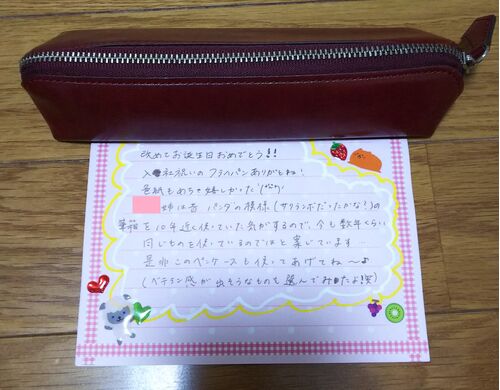 改めてお誕生日おめでとう!!
入社祝いの フライパンありがとね!
色紙もめちゃ嬉しかった(^^)
姉は昔 パンダの模様(サクランボだったかな!)の
筆箱を10年近く使っていた気がするので、今も数年くらい
同じものを使っているのではと案じています…
是非このペンケースも使ってあげてね〜♪
(ベテラン感が出そうなものを選んでみたよ!笑)